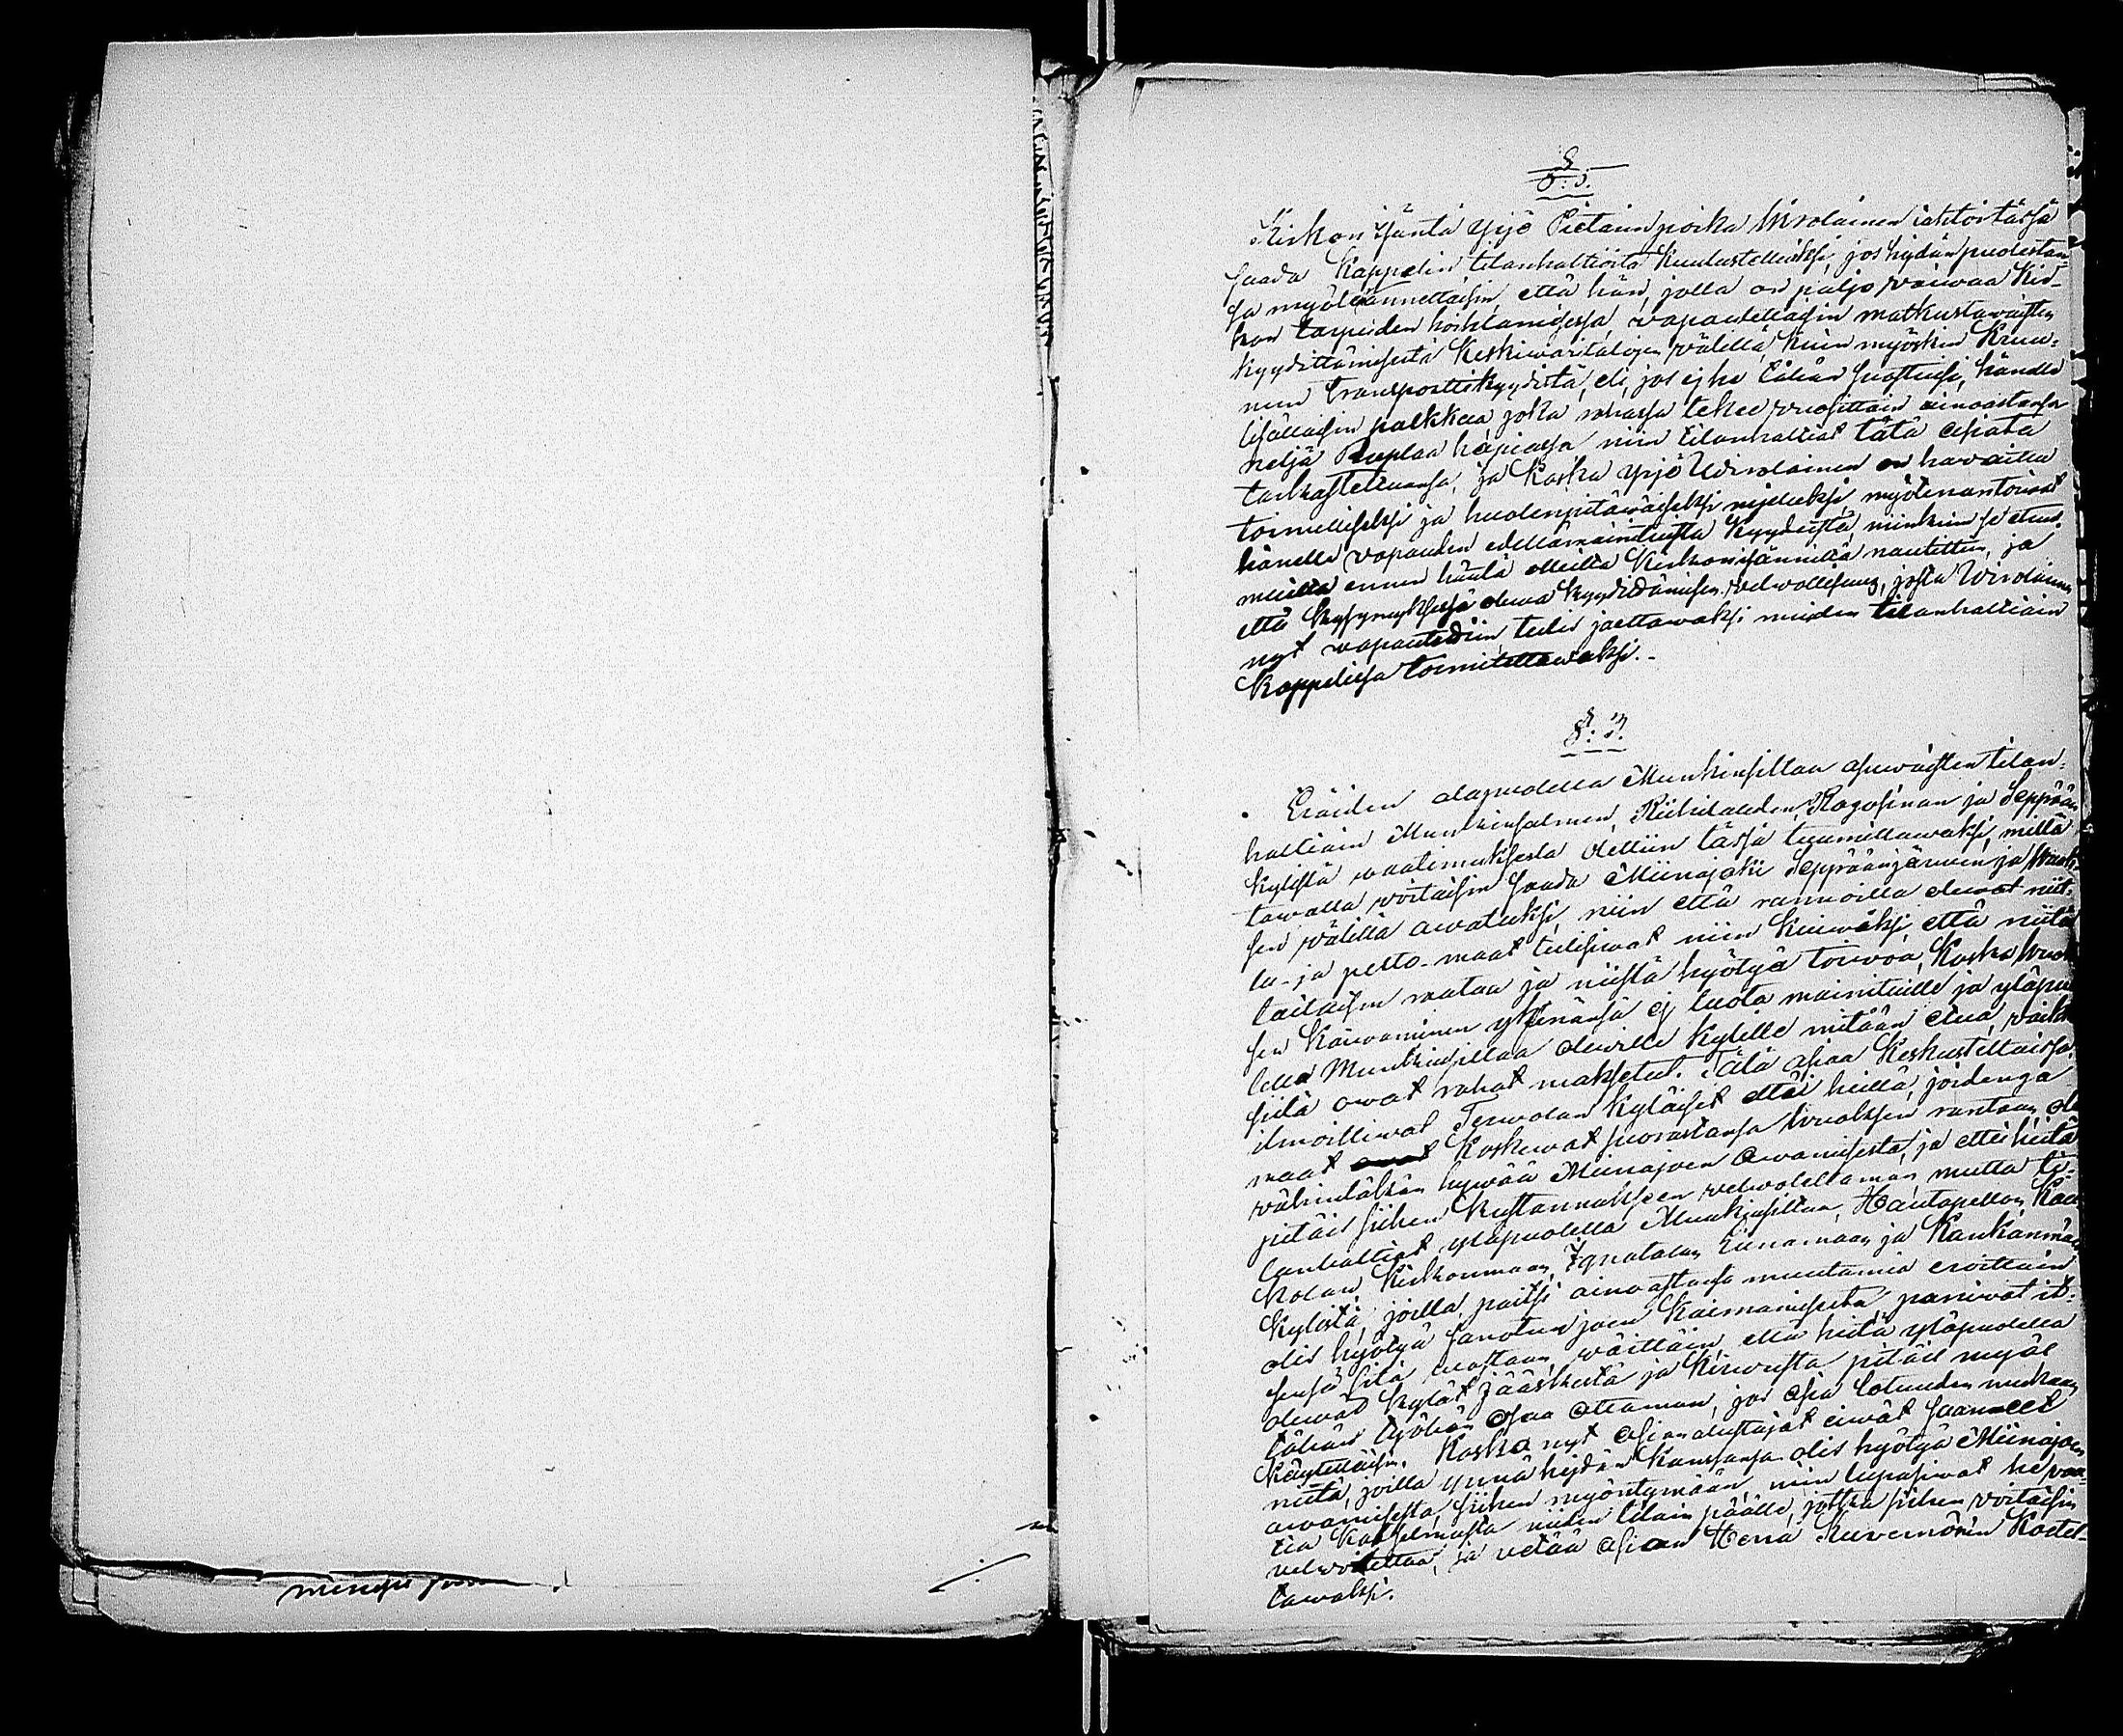 Kirkon isäntä Yrjö Pietarinpoika Wirolainen tahtoi tässä
saada Kappelin tilanhaltioita kuulustelluiksi, jos hejdän puolestan-
sa myöt annettaisin että hän, jolla on paljo vaiwaa Kir-
kon tarpeiden hoitamisessa, vapautettaisin matkustawaisten
kyydittämisestä Keskiwaritalojen välillä kuin myöskin Kruu-
nun transporttikyydistä, eli, jos ej he tähän suostuisi, hänelle
lisättäisin palkkaa joka rahassa tekee vuosittain ainoastansa
neljä Ruplaa hopiassa niin tilanhaltiat tätä asiata
tarkastelluansa, ja koska Yrjö Wirolainen on havaittu
toimelliseksi ja huolenpitäwäiseksi mieheksi, myötenantoiwat
hänelle vapauden edellämainituista kyydeistä, niinkuin se etu
muilla ennen häntä olleilla Kirkonisännillä nautittiin, ja
että kysymyksessä olewa kyyditsämisen velwollisuus, josta Wirolainen
nyt vapautettiin tulis jaettawaksi muiden tilanhaltiain
Kappelissa toimitettawaksi.-
§. 3.
Eräiden alapuolella Munkinsiltaa asuwaisten tilan-
haltiain Munkinsalmen, Riihilahden, Rogosinan ja Seppään
kylistä waatimuksesta olettiin tässä tuumittawaksi, millä
tawalla voitaisin saada Miinajoki Seppäänjärwen ja Wuok-
sen välillä awatuksi, niin että rannoilla olewat niit-
tu- ja pelto-maat tulisiwat niin kuiwaksi, että niitä
taitaisin wataa ja niistä hyötyä toiwoa, Koska Wuok
sen Kaiwaminen yksinänsä ej tuota mainituille ja yläpuo
lella Munkinsiltaa olewille kylille mitään etua, vaikk
siitä owat rahat maksetut. Tätä asiaa keskusteltaissa,
ilmoittiwat Terwolan kyläiset ettäi heillä, joidenga
maat koskewat suorastansa Wuoksen rantaan, ole
vähintäkän hywää Miinajoen Awamisesta, ja ettei heitä
pitäis siihen kustannukseen velwoitettaman, mutta ti-
lanhaltiat yläpuolella Munkinsiltaa, Hautapellon, Kau
kolan, Kirkonmaan, Ignatalan, Liinamaan ja Kankanmäen
kylistä, joilla, paitsi ainoastansa muutamia erittäin
olis hyötyä sanotun joen Kaiwamisesta, paniwat it-
sensä sitä wastaan, wäittäin, että heitä yläpuolella
olewat kylät Jääskestä ja Kirwusta pitäis myös
tähän työhön osaa ottaman, jos asia totuuden mukaan
käytettäisin. Koska nyt asian alustajat eiwät saanneet
niitä, joilla ynnä hejdän kanssansa olis hyötyä Miinajoen
awamisesta, siihen myöntymään, niin lupasiwat he vaa-
tia Katselmusta niiden tilain päälle, jotka siihen voitaisin
velwoittaa, ja vetää asian Herra Kuvernörin Koetel-
tawaksi.